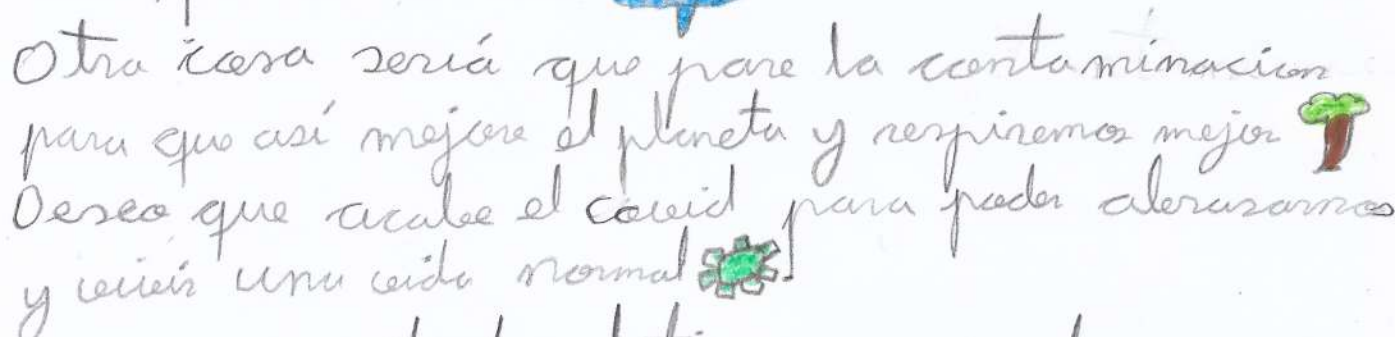 Otra cosa seriá que pare la contaminacion
para que así mejore el planeta y respiremos mejor
Deseo que acabe el covid para poder abrazarnos
y vivir una vida normal